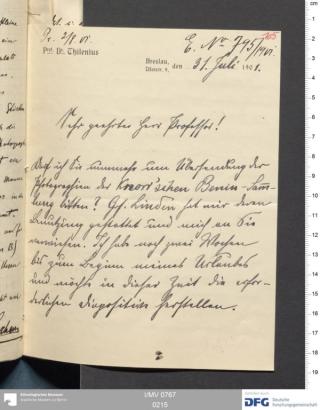 Pr. 2/8 01.
E. No 795/1901.
Prof. Dr. Thilenius
Breslau,
den 31. Juli 1901.
Sehr geehrter Herr Professor!
Darf ich Sie nunmehr um Übersendung der
Photographien der Knorr'schen Benin-Samm-
lung bitten? Gf. Linden hat mir deren
Benutzung gestattet und mich an Sie
verwiesen. Ich habe noch zwei Wochen
bis zum Beginn meines Urlaubes
und möchte in dieser Zeit die erfor-
derlichen Diapositive herstellen.
Ethnologisches Museum
Staatliche Museen zu Berlin
I/MV 0767
0215
DFG
Deutsche
Forschungsgemeinschaft